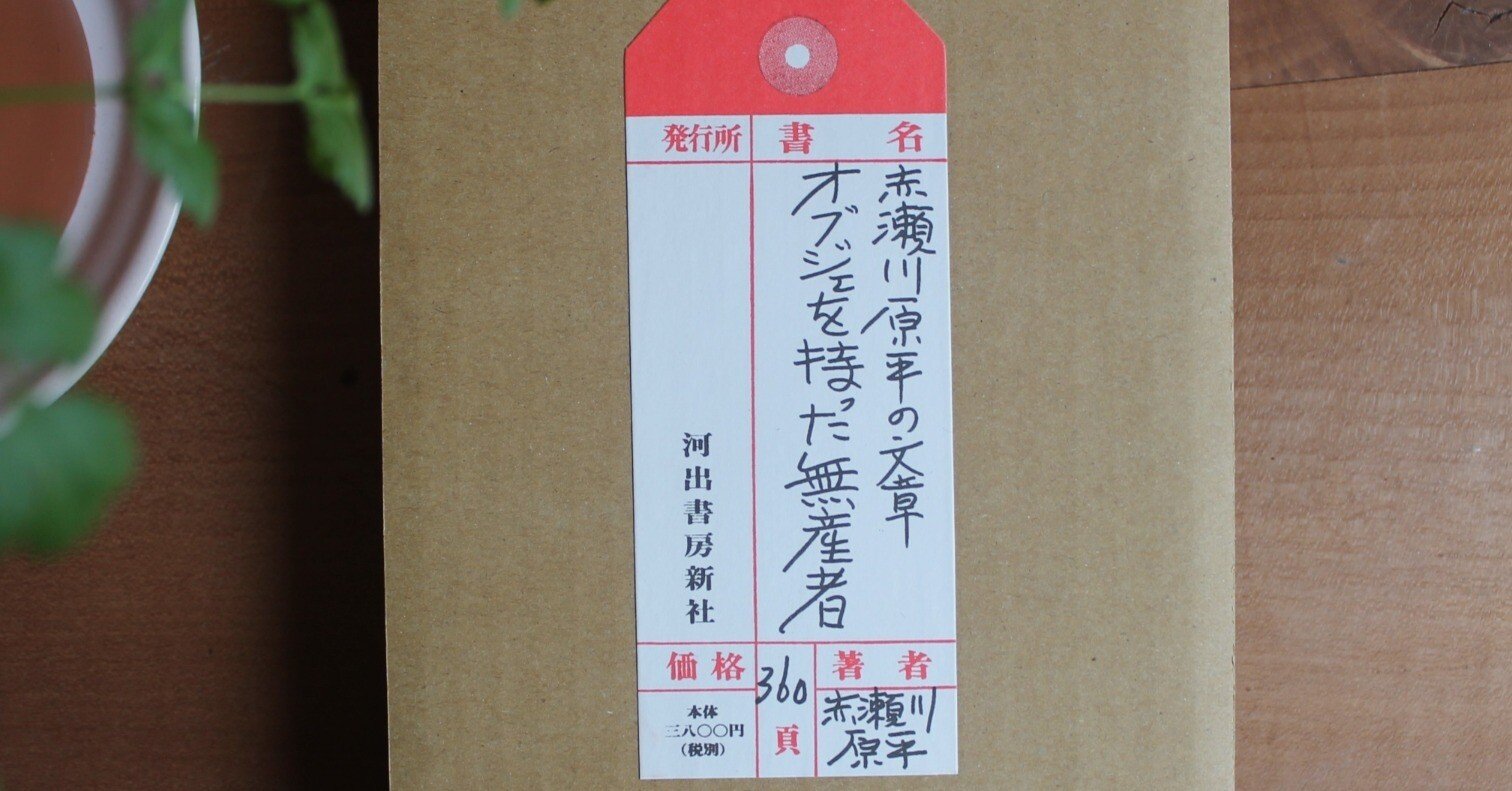 書名
赤瀬川原平の文章
オブジェを持った無産者
発行所
河出書房新社
著者
赤瀬川
原平
360
頁
価格
本体
三八〇〇円
(税別)